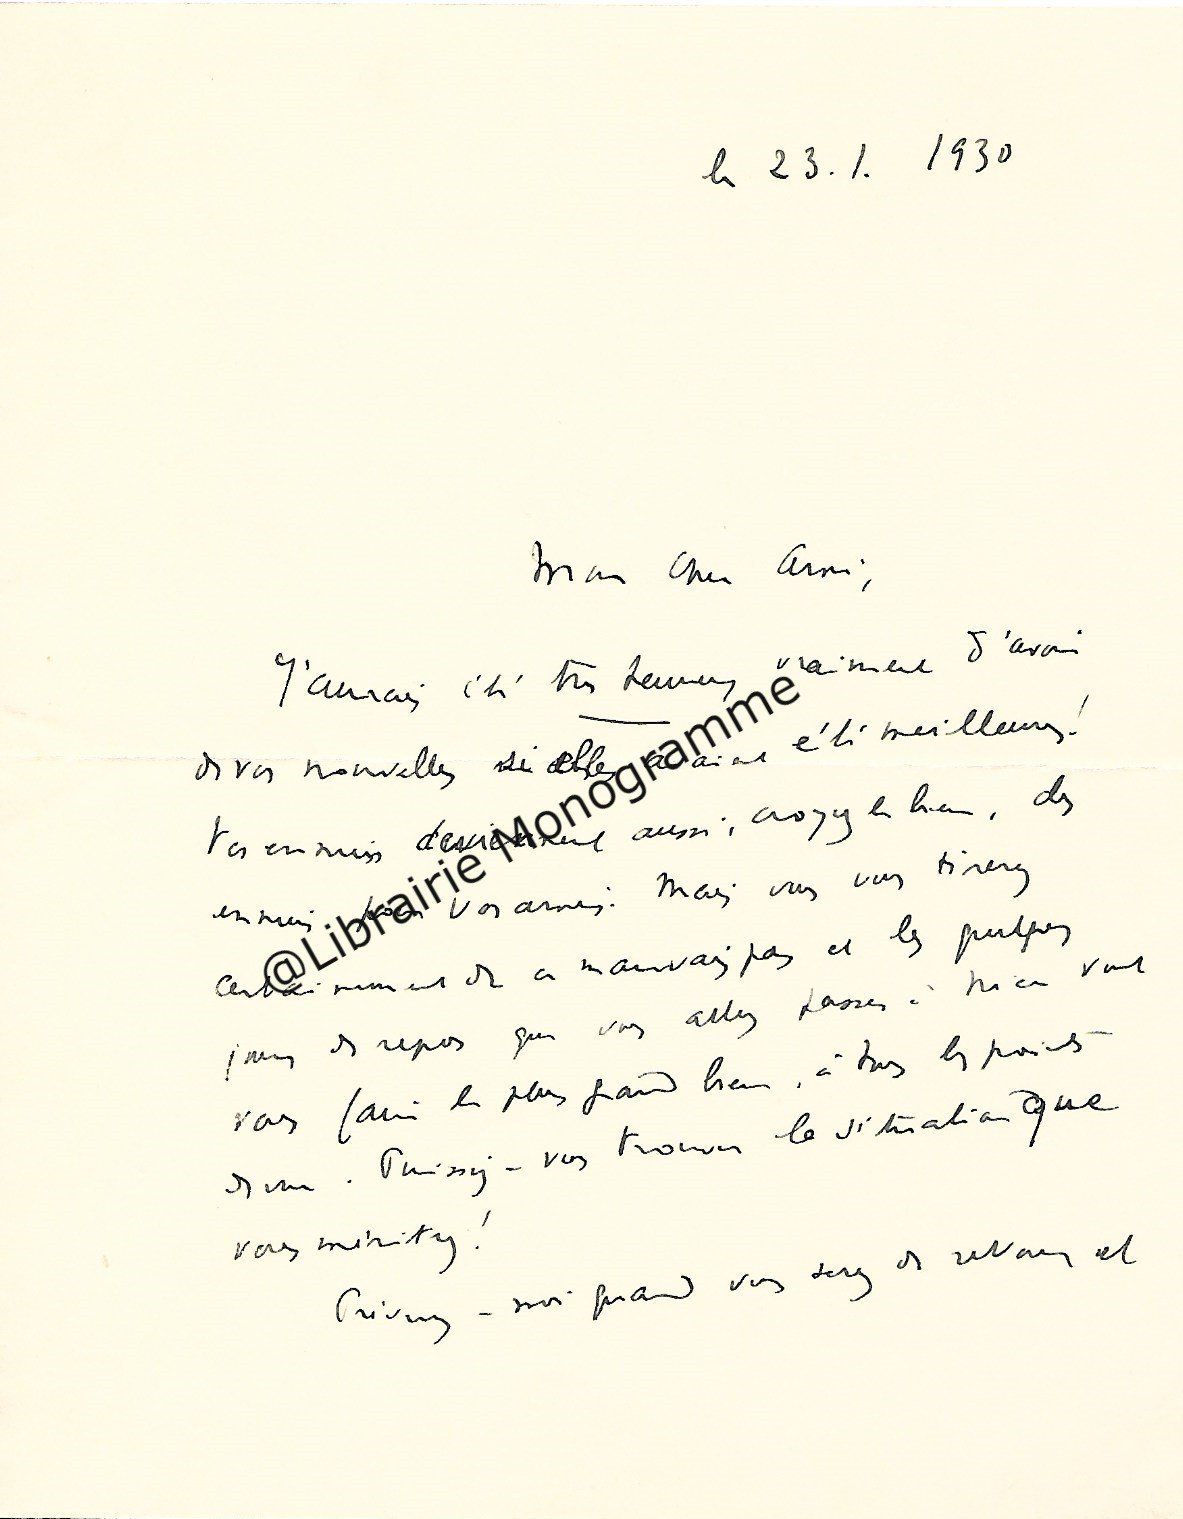 le 23.1. 1930
Mon cher Ami,
J'aurais été très heureux vraiment d'avoir
de vos nouvelles si elles avaient été meilleures!
Vos ennuis deviennent aussi, croyez le bien, des
ennuis pour vos amis. Mais vous vous tirerez
certainement de ce mauvais pas et les quelques
jours de repos que vous allez passer à Nice vont
vous faire le plus grand bien, à tous les points
de vue. Puissiez-vous trouver la situation que
vous méritez!
Prévenez-moi quand vous serez de retour et
@Librairie Monogramme